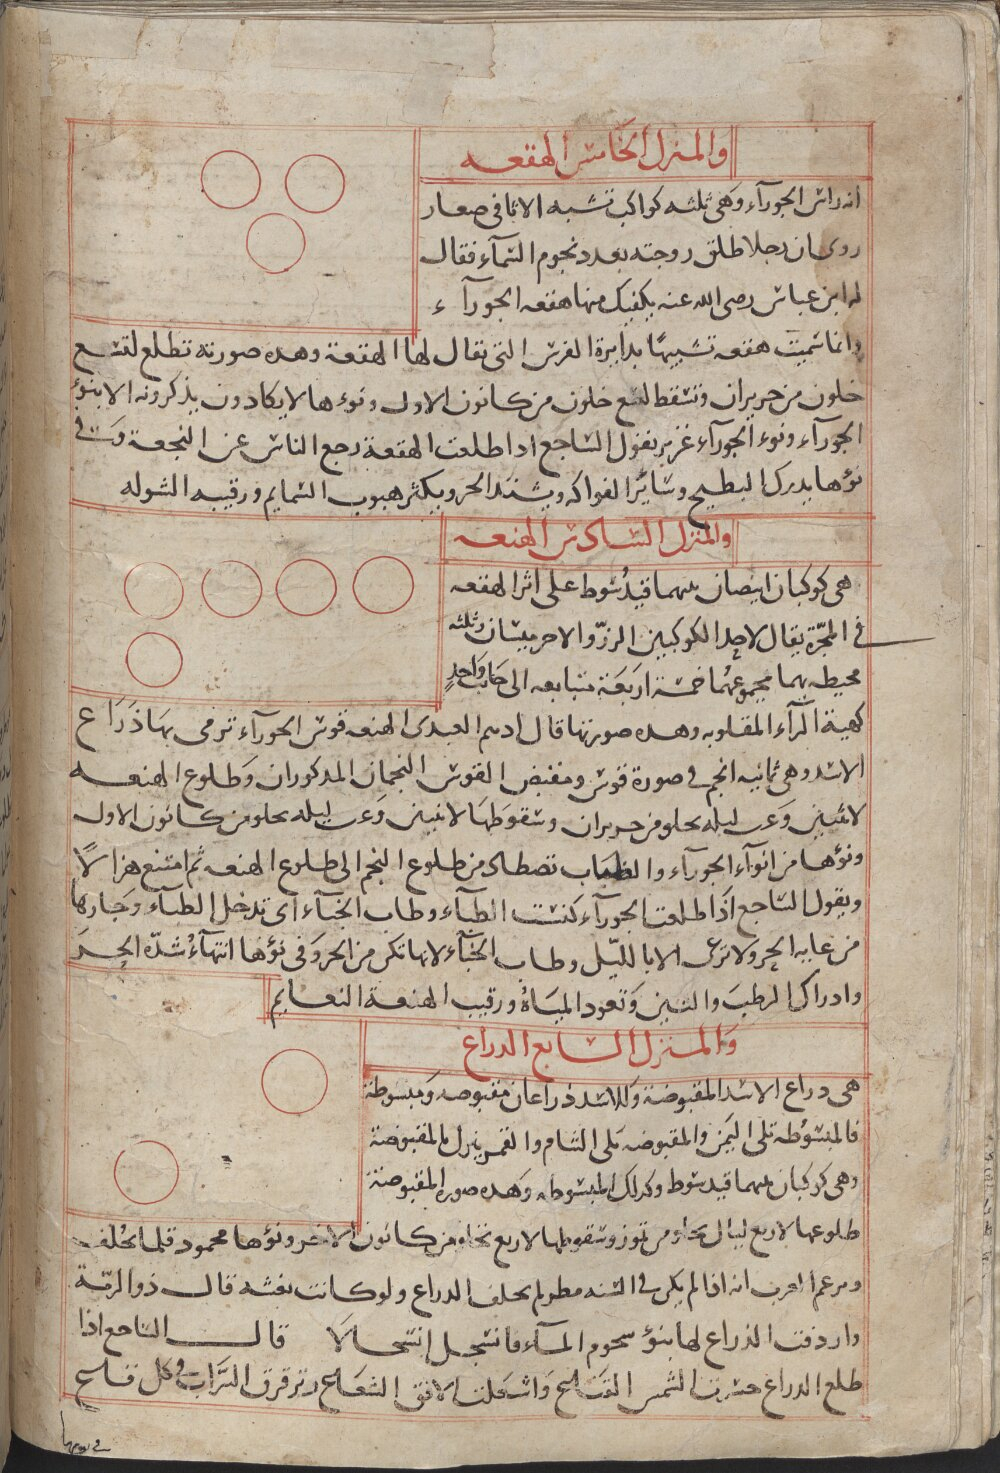 والمنزل الخامس الهقعه
انه راس الجوزآء وهى ثلثه كواكب تشبه الاثافى صغار
روى ان رجلا طلق زوجته بعدد نجوم السمآء فقال
له ابن عباس رضى الله عنه يكفيك منها هقعه الجوزآء
وانما سميت هقعه تشبيها بدايرة الفرس التى يقال لها الهقعة وهذه صورته تطلع لتسع
خلون من حزيران وتسقط لتسع خلون من كانون الاول ونوءها لا يكادون يذكرونه الا بنوء
الجوزآء ونوء الجوزآء غزير يقول الساجع اذا طلعت الهقعة رجع الناس عن النجعة وفى
نؤها يدرك البطيح وسائر الفواكه ويشتد الحر ويكثر هبوب السمايم ورقيبه الشوله
والمنزل السادس الهنعه
هى كوكبان ابيضان بينهما قيد سوط على اثر الهقعه
فى المجرّة يقال لاحد الكوكبين الزرّ والاخر ميسان وثلثه
محيطه بهما مجموعهما خمسة اربعة متتابعه الى جانب واحد
كهية الرآء المقلوبه وهذه صورتها قال ادهم العبدى الهنعه قوس الجوزآء ترمى بها ذراع
الاسد وهى ثمانيه انجم فى صورة قوس ومقبض القوس النجمان المذكوران وطلوع الهنعه
لاثنين وعشرين ليله تخلو من حزيران وسقوطها لاثنين وعشرين ليله تخلو من كانون الاول
ونؤها من انوآء الجوزآء والظباب تصطاد من طلوع النجم الى طلوع الهنعه ثم امتنع هزالا
ويقول الساجع اذا طلعت الجوزآء كنست الظبآء وطاب الخبآء اى تدخل الظبآء وجارها
من غايه الحر ولا ترعى الا بالليل وطاب الخبآء لانها تكن من الحر وفى نؤها انتهآء شدّه الحر
وادراك الرطب والتين وتعود المياة ورقيب الهنعة النعايم
والمنزل السابع الذراع
هى ذراع الاسد المقبوضة وللاسد ذراعان مقبوضه ومبسوطة
فالمبسوطه تلى اليمن والمقبوضه تلى الشام والقمر ينزل بالمقبوضة
وهى كوكبان بينهما قيد سوط وكذلك المبسوطه وهذه صورة المقبوضة
طلوعها لاربع ليال تخلو من تموز وسقوطها لاربع تخلو من كانون الاخر ونؤها محمود قلما يخلف
وتزعم العرب انه اذا لم يكن فى السنه مطر لم يخلف الذراع ولو كانت بغشه قال ذو الرمّة
واردفت الذراع لها بنؤ سجوم المآء فانسجل انسجالا قال الساجع اذا
طلع الذراع حسرت الشمس القناع واشعلت الافق الشعاع وترقرق السّراب فى كل قاع